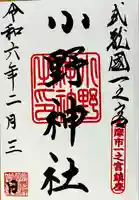 武蔵國一之宮
多摩市一之宮鎮座
小野神社
令和六年二月三日